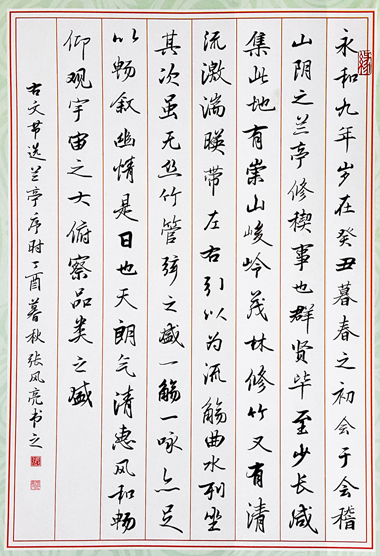 永和九年岁在癸丑暮春之初会于会稽
山阴之兰亭修禊事也群贤毕至少长咸
集此地有崇山峻岭茂林修竹又有清
流激湍暎带左右引以为流觞曲水列坐
其次虽无丝竹管弦之盛一觞一咏亦足
以畅叙幽情是日也天朗气清惠风和畅
仰观宇宙之大俯察品类之盛
古文节选兰亭序时丁酉暮秋张凤亮书之